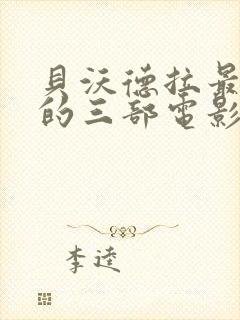 貝沃德拉最
的三部電影
李逵